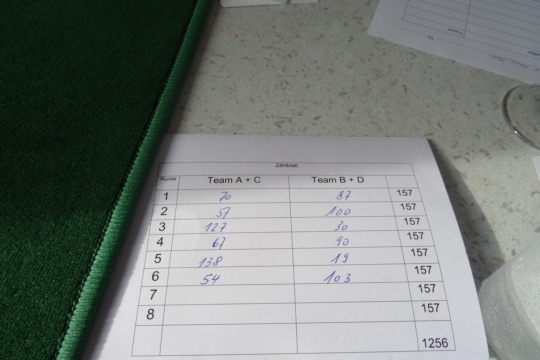 Zählblatt
Runde Team A + C Team B + D
1 70 87 157
2 57 100 157
3 127 30 157
4 67 90 157
5 138 19 157
6 54 103 157
7 157
8 157
1256